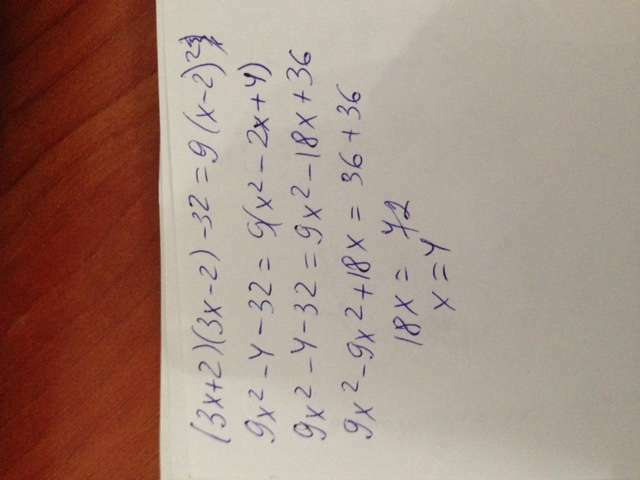 (3x+2)(3x-2)-32=9(x-2)²
9x²-4-32=9(x²-2x+4)
9x²-4-32=9x²-18x+36
9x²-9x²+18x=36+36
18x=72
x=4